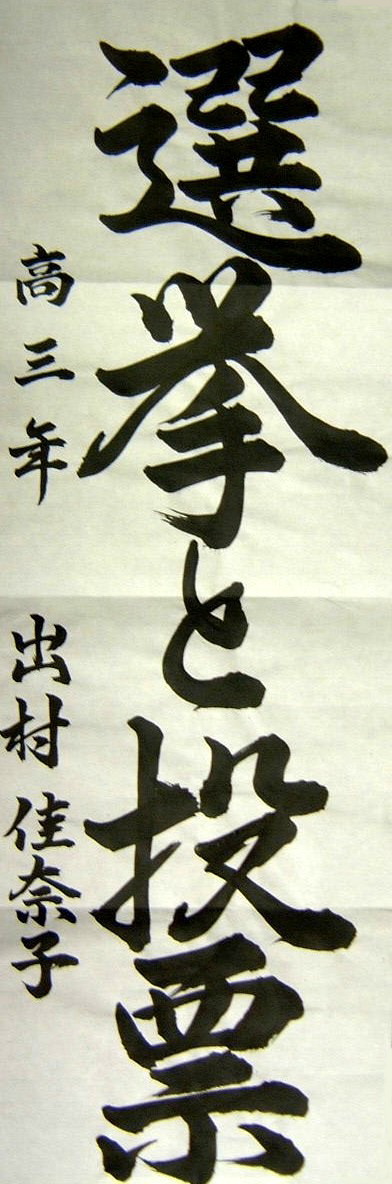 選挙と投票
高三年 出村佳奈子